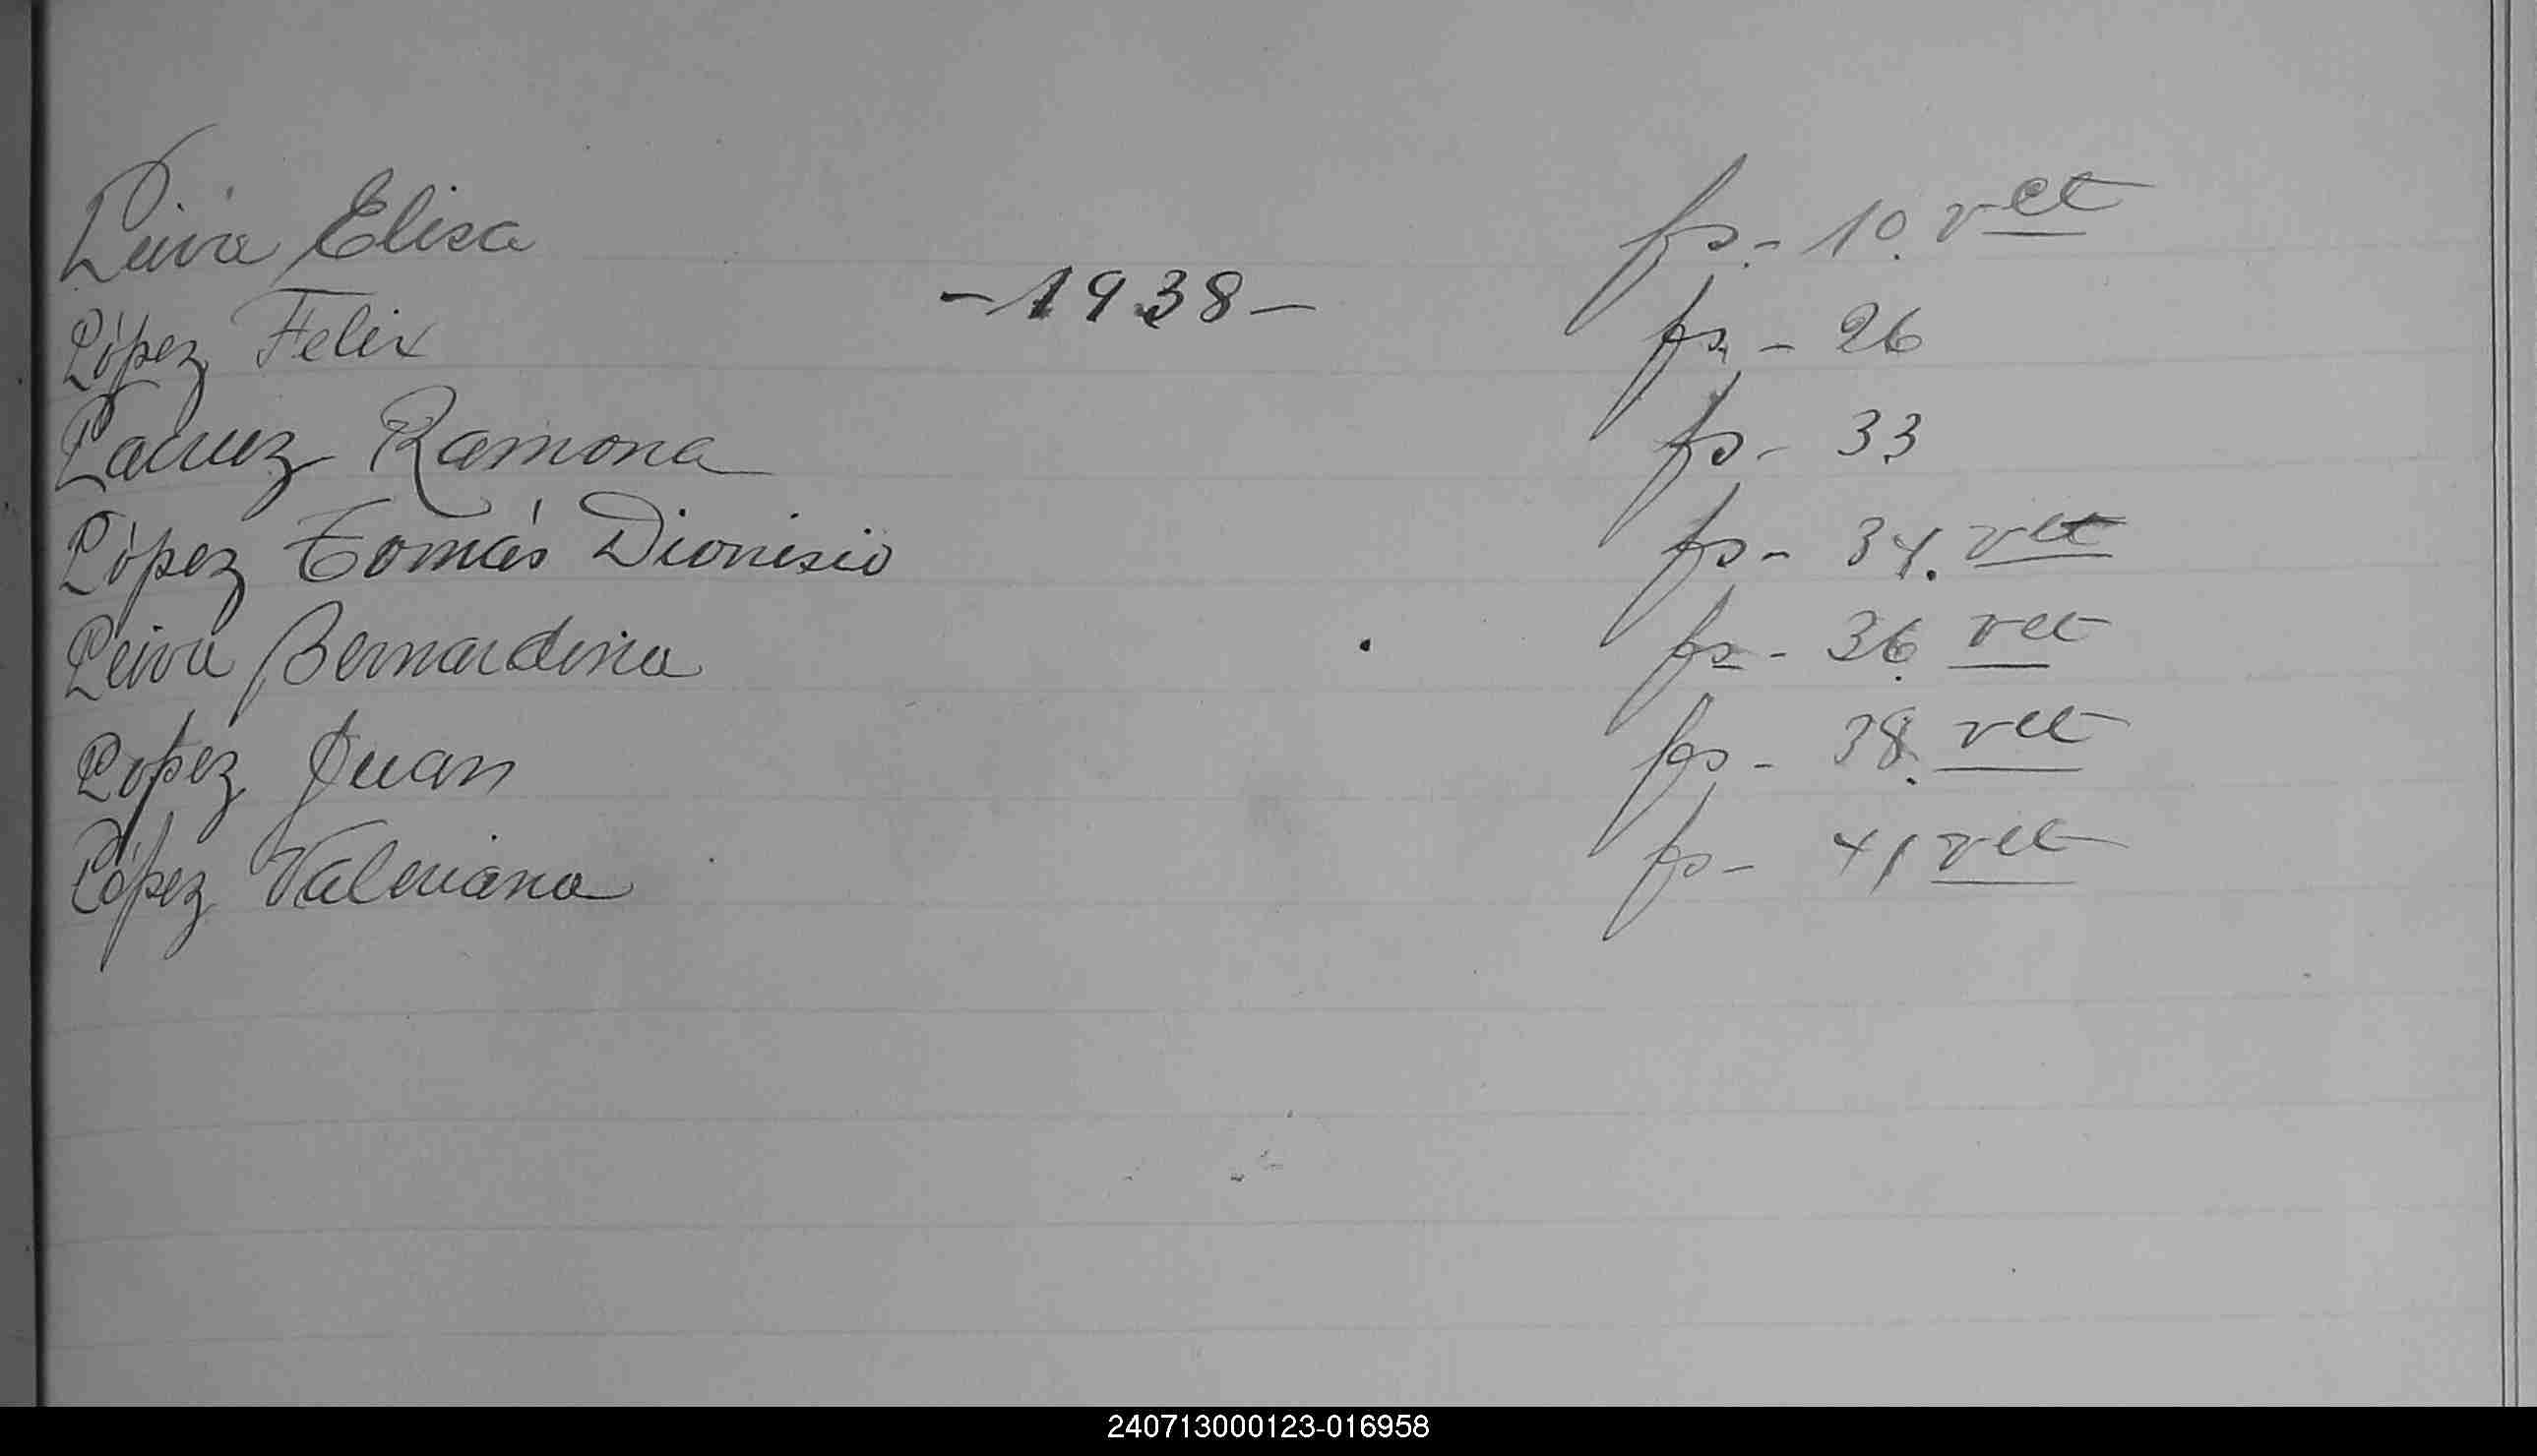 Leiva Elisa fs. - 10. vet
- 1938 -
López Felix fs. - 26
Lacruz Ramona fs - 33
López Tomás Dionisio fs - 34. vet
Leiva Bernardina fs - 36. vet
Lopez Juan fs - 38. vet
López Valeriana fs - 41 vet
240713000123-016958